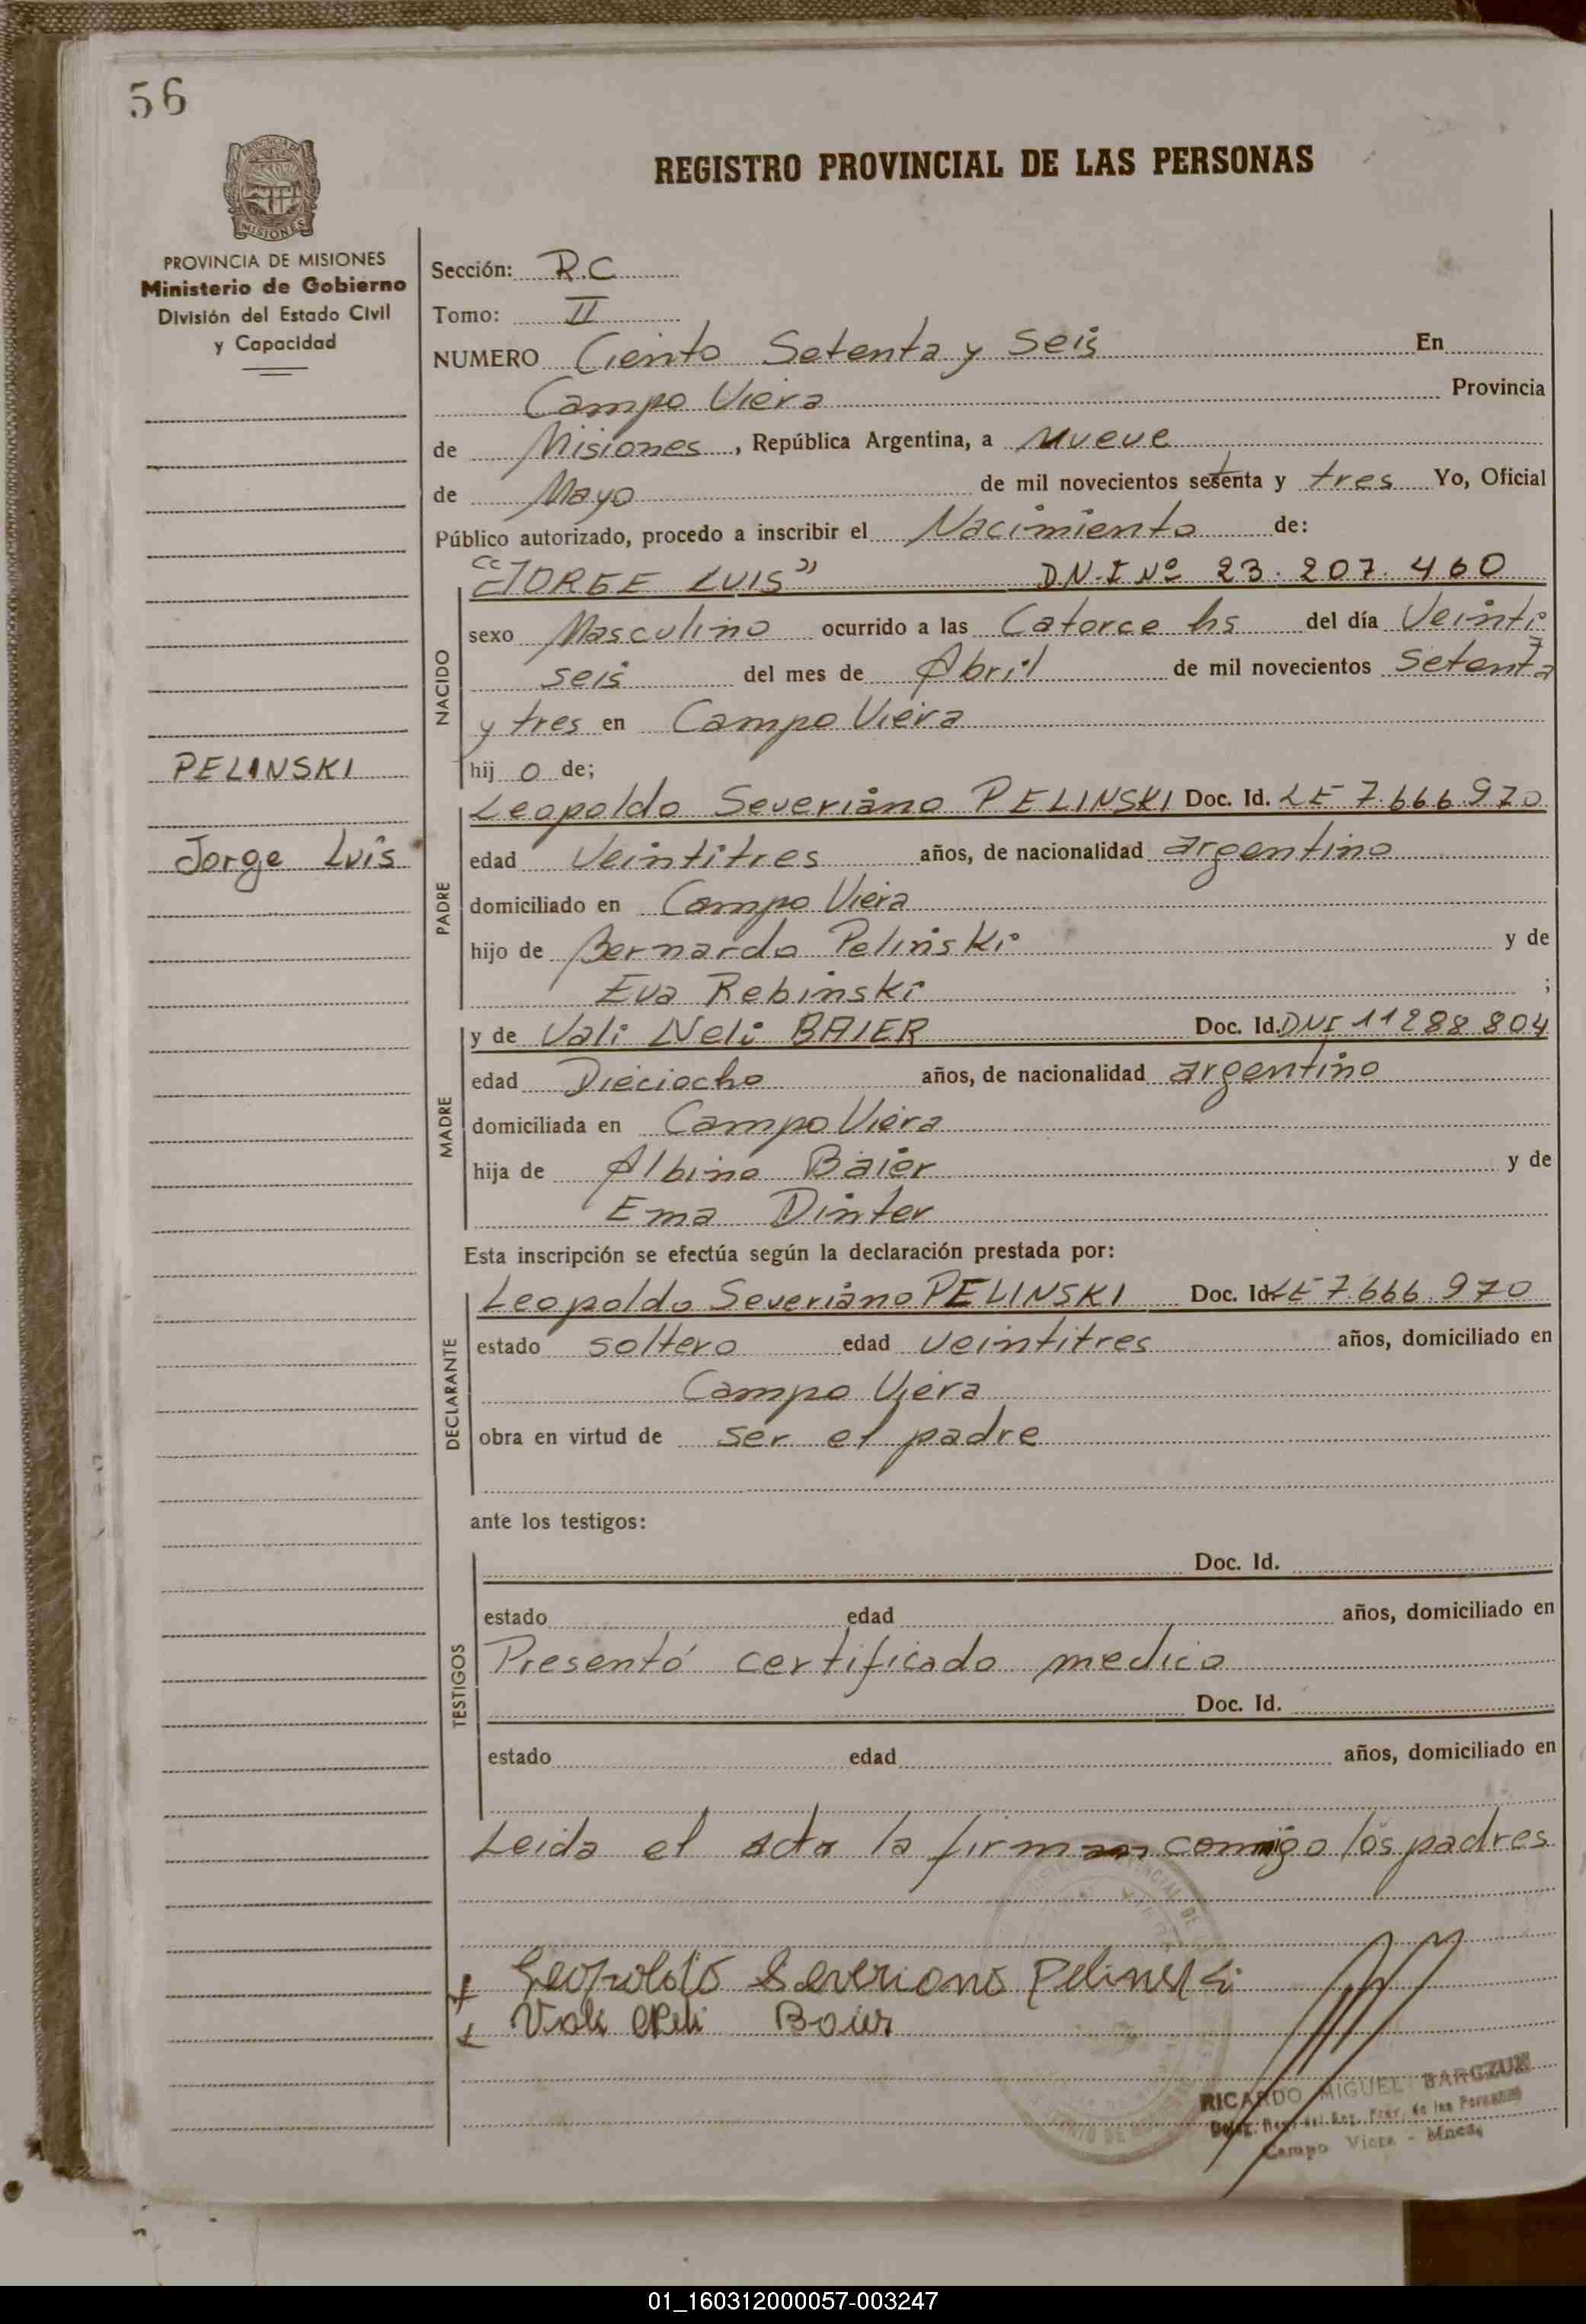 56
REGISTRO PROVINCIAL DE LAS PERSONAS
PROVINCIA DE MISIONES
Ministerio de Gobierno
División del Estado Civil
y Capacidad
PELINSKI
Jorge Luis
Sección: R.C
Tomo: II
NUMERO Ciento Setenta y Seis En
Campo Viera Provincia
de Misiones, República Argentina, a Nueve
de Mayo de mil novecientos setenta y tres Yo, Oficial
Público autorizado, procedo a inscribir el Nacimiento de:
"JORGE LUIS" D.N.I Nº 23.207.460
NACIDO
sexo Masculino ocurrido a las Catorce hs del día Veinti
seis del mes de Abril de mil novecientos Setenta
y tres en Campo Viera
hij o de;
PADRE
Leopoldo Severiano PELINSKI Doc. Id. LE 7.666.970
edad Veintitres años, de nacionalidad argentino
domiciliado en Campo Viera
hijo de Bernardo Pelinski y de
Eva Rebinski ;
MADRE
y de Vali Neli BAIER Doc. Id. DNI 11288804
edad Dieciocho años, de nacionalidad argentino
domiciliada en Campo Viera
hija de Albino Baier y de
Ema Dinter
Esta inscripción se efectúa según la declaración prestada por:
DECLARANTE
Leopoldo Severiano PELINSKI Doc. Id. LE 7.666.970
estado soltero edad veintitres años, domiciliado en
Campo Viera
obra en virtud de ser el padre
ante los testigos:
TESTIGOS
Doc. Id.
estado edad años, domiciliado en
Presentó certificado medico
Doc. Id.
estado edad años, domiciliado en
Leida el acta la firman comigo los padres
Leopoldo Severiano Pelinski
Vali Neli Baier
RICARDO MIGUEL BARCZUK
Campo Viera - Mnes.
01_160312000057-003247